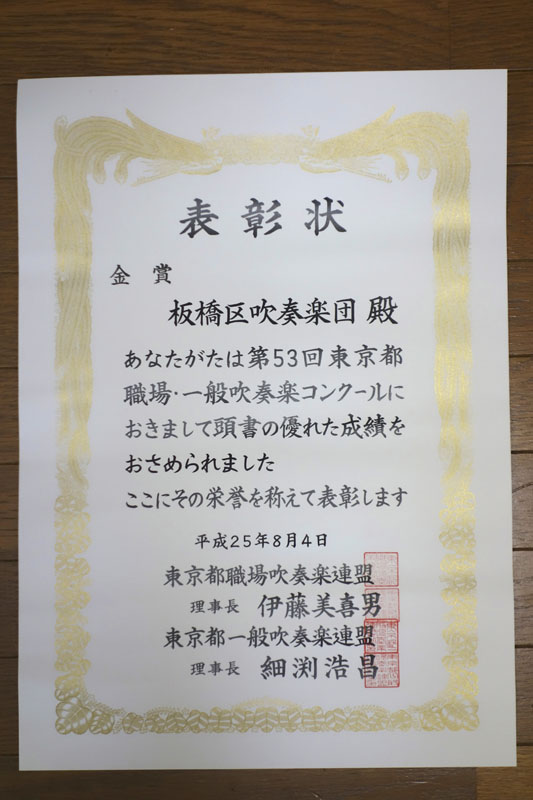 表彰状
金賞
板橋区吹奏楽団 殿
あなたがたは第53回東京都
職場・一般吹奏楽コンクールに
おきまして頭書の優れた成績を
おさめられました
ここにその栄誉を称えて表彰します
平成25年8月4日
東京都職場吹奏楽連盟
理事長 伊藤美喜男
東京都一般吹奏楽連盟
理事長 細渕浩昌